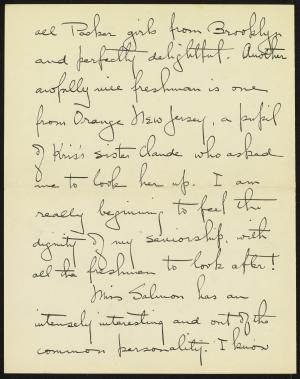 all Packer girls from Brooklyn
and perfectly delightful. Another
awfully nice freshman is one
from Orange New Jersey, a pupil
of Kris's sister Claude who asked
me to look her up. I am
really beginning to feel the
dignity of my seniorship, with
all the freshman to look after!
Miss Salmon has an
intensely interesting and out of the
common personality. I know